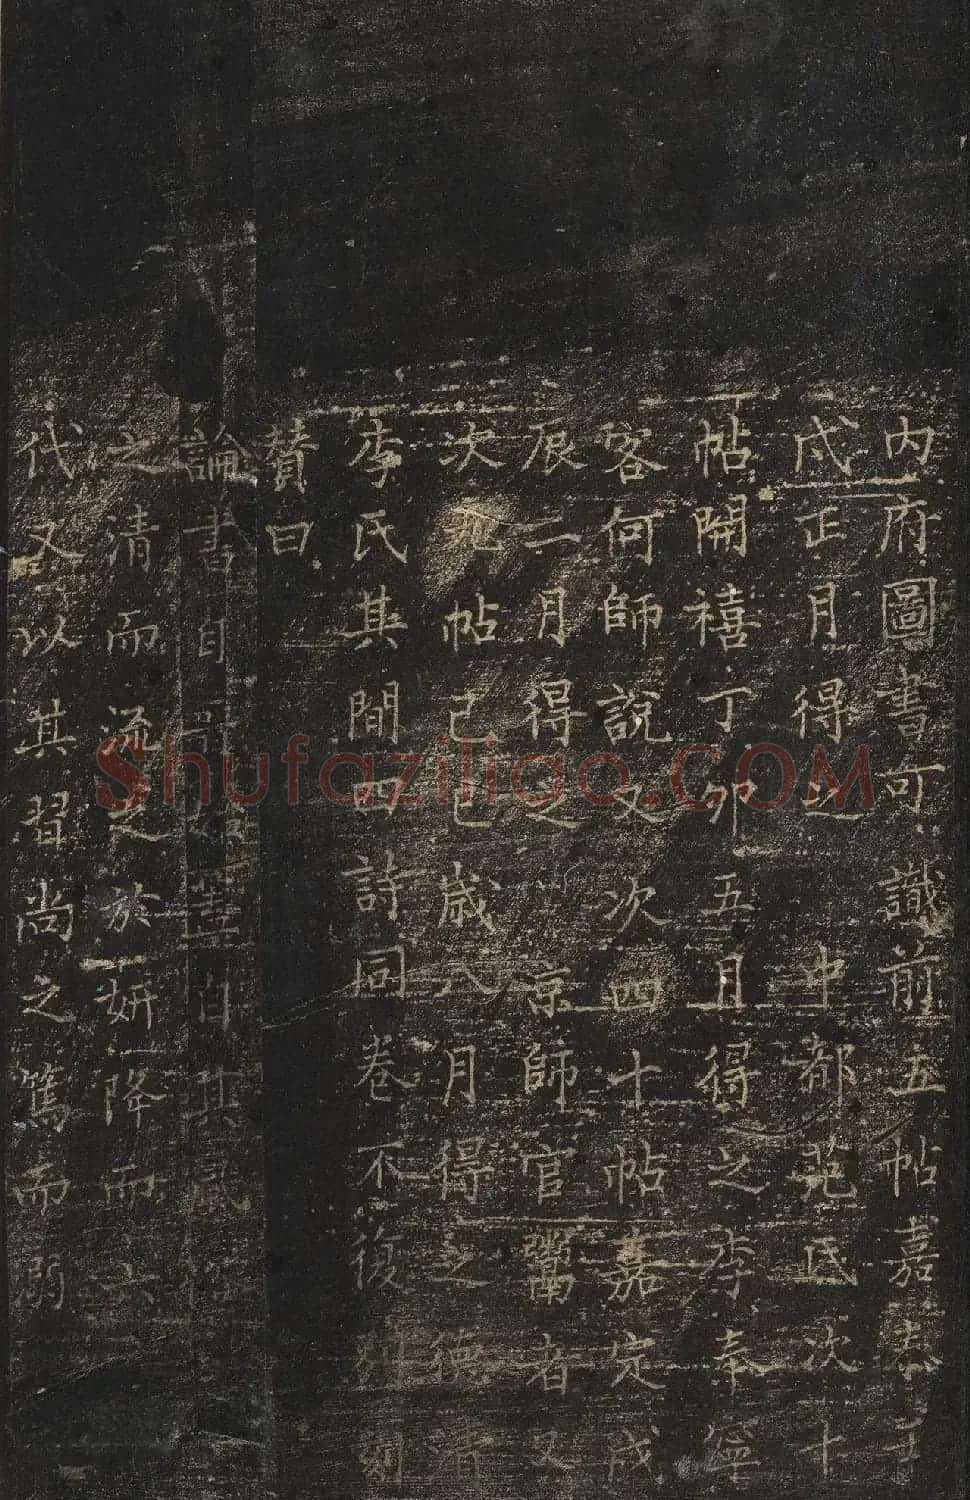 内府圖書可識前五帖嘉泰壬
戌正月得之中都范氏次十
帖開禧丁卯五月得之李奉寧
客何師說又次四十帖嘉定戊
辰二月得之京師官鬻者又
次九帖己巳歲八月得之德清
李氏其間四詩同卷不復別刻
贊曰
論書自
之清而流之於妍降而六
代又以其習尚之篤而
Shufaziliao.COM